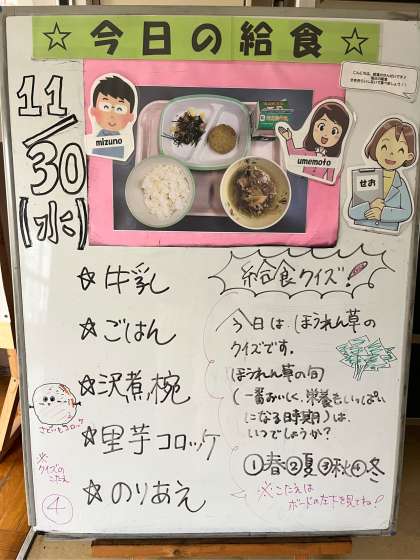 ☆今日の給食☆
11/30
(水)
mizuno
umemoto
せお
☆牛乳
☆ごはん
☆沢煮椀
☆里芋コロッケ
☆のりあえ
給食クイズ!
今日は、ほうれん草の
クイズです。
ほうれん草の旬
(一番おいしく、栄養もいっぱい
になる時期)は、
いつでしょうか?
①春②夏③秋④冬
※こたえは
ボードの左下を見てね!
さといもコロッケ
※クイズの
こたえ
④